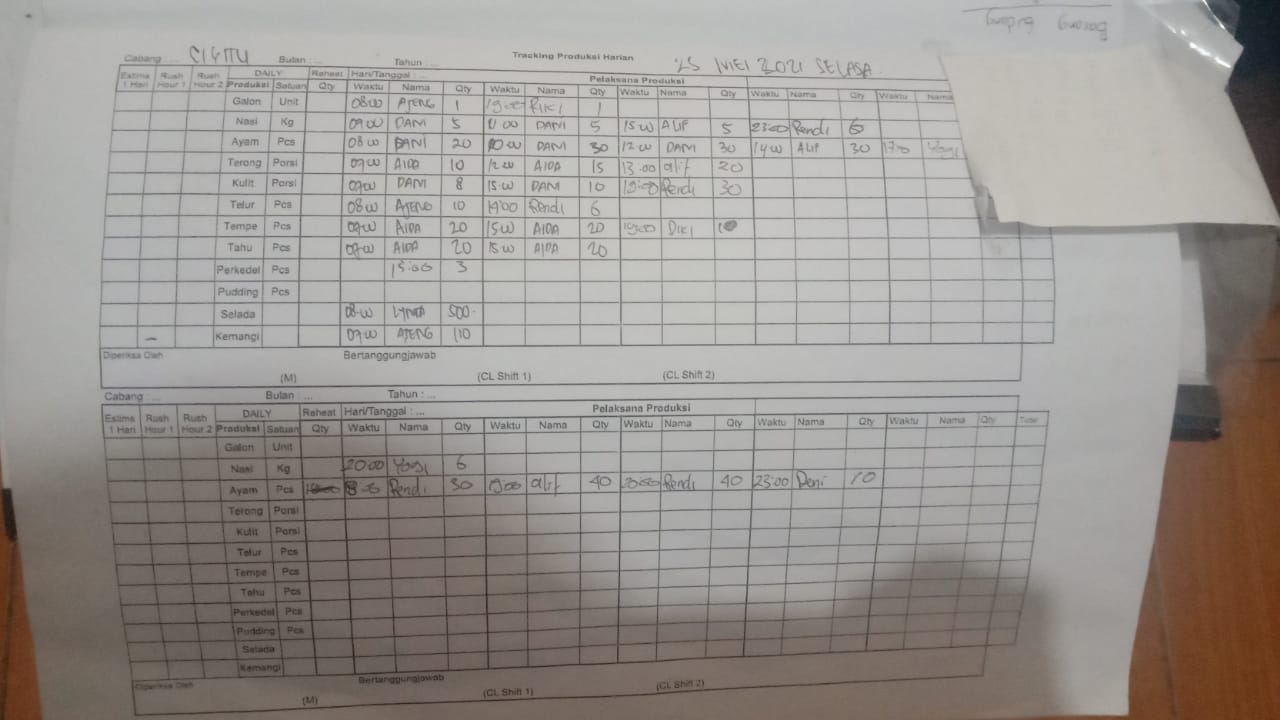 Barang Bidang
Tracking Produksi Harian
Cabang ... CIGITU Bulan : ... Tahun : ... 25 MEI 2021 SELASA
Estima 1 Hari Rush Hour 1 Rush Hour 2 DAILY Reheat Hari/Tanggal : ... Pelaksana Produksi
Produksi Satuan Qty Waktu Nama Qty Waktu Nama Qty Waktu Nama Qty Waktu Nama Qty Waktu Nama
Galon Unit 08.00 AJENG 1 19:00 RIKI 1
Nasi Kg 09.00 DANI 5 11.00 DANI 5 15.00 ALIF 5 23:00 Rendi 6
Ayam Pcs 08.00 DANI 20 10.00 DANI 30 12.00 DANI 30 14.00 ALIF 30 17.00 Yogi
Terong Porsi 07.00 AIDA 10 12.00 AIDA 15 13.00 alif 20
Kulit Porsi 09.00 DANI 8 15.00 DANI 10 19:00 Rendi 30
Telur Pcs 08.00 AJENG 10 19:00 Rendi 6
Tempe Pcs 09.00 AIDA 20 15.00 AIDA 20 19:00 DIKI 10
Tahu Pcs 09.00 AIDA 20 15.00 AIDA 20
Perkedel Pcs 15:00 3
Pudding Pcs
Selada 08.00 LYNDA 500
– Kemangi 07.00 AJENG 110
Diperiksa Oleh Bertanggungjawab
(M) (CL Shift 1) (CL Shift 2)
Cabang : ... Bulan : ... Tahun : ...
Estima 1 Hari Rush Hour 1 Rush Hour 2 DAILY Reheat Hari/Tanggal : ... Pelaksana Produksi
Produksi Satuan Qty Waktu Nama Qty Waktu Nama Qty Waktu Nama Qty Waktu Nama Qty Waktu Nama Qty Total
Galon Unit
Nasi Kg 20:00 Yogi 6
Ayam Pcs Rendi 30 19:00 alif 40 20:00 Rendi 40 23:00 Deni 10
Terong Porsi
Kulit Porsi
Telur Pcs
Tempe Pcs
Tahu Pcs
Perkedel Pcs
Pudding Pcs
Selada
Kemangi
Diperiksa Oleh Bertanggungjawab
(M) (CL Shift 1) (CL Shift 2)